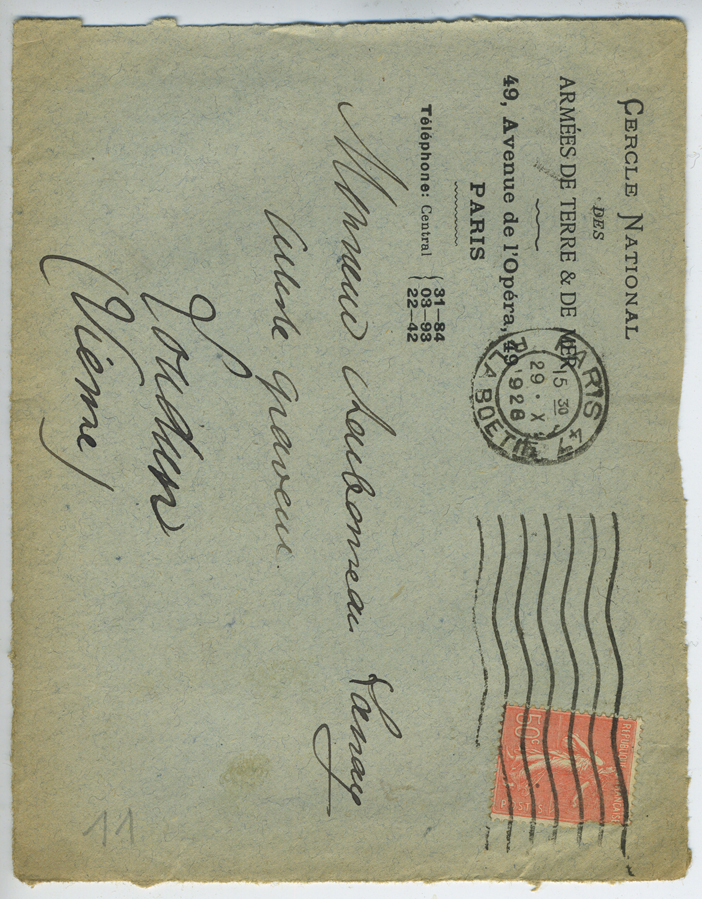 CERCLE NATIONAL
DES
ARMÉES DE TERRE & DE MER
49, Avenue de l'Opéra, 49
PARIS
Téléphone: Central { 31—84
03—93
22—42
PARIS 47
15 30
29 · X
1928
R. LA BOETIE
RÉPUBLIQUE FRANÇAISE
50c
POSTES
Monsieur Charbonneau Lanay
Artiste graveur
Loudun
(Vienne)
11